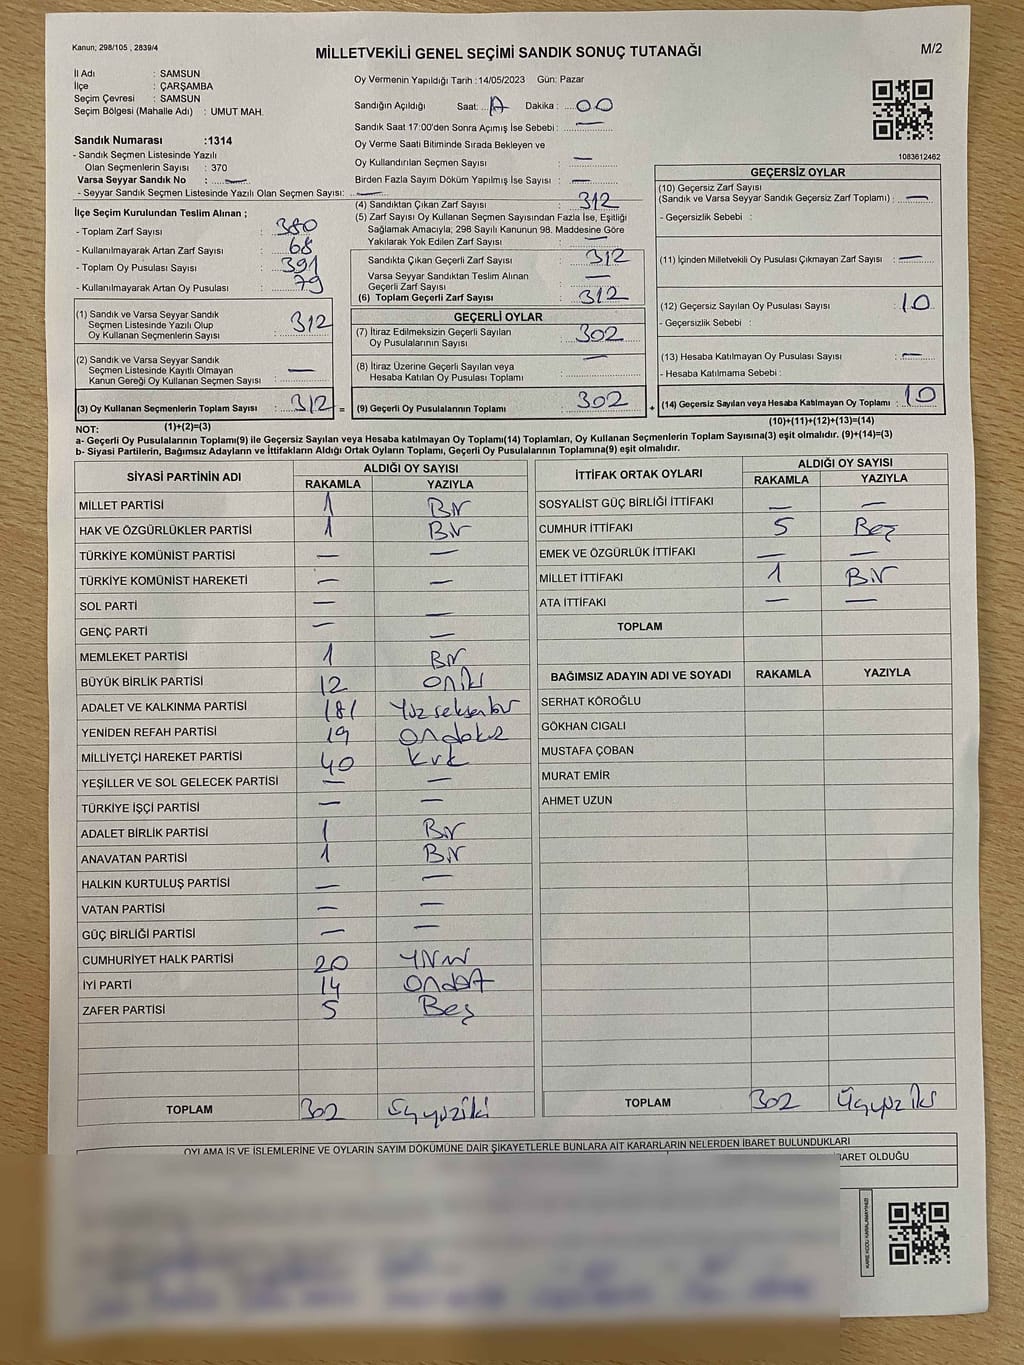 Kanun; 298/105 , 2839/4
MİLLETVEKİLİ GENEL SEÇİMİ SANDIK SONUÇ TUTANAĞI
M/2
İl Adı : SAMSUN
İlçe : ÇARŞAMBA
Seçim Çevresi : SAMSUN
Seçim Bölgesi (Mahalle Adı) : UMUT MAH.
Sandık Numarası :1314
- Sandık Seçmen Listesinde Yazılı
Olan Seçmenlerin Sayısı : 370
Varsa Seyyar Sandık No : —
- Seyyar Sandık Seçmen Listesinde Yazılı Olan Seçmen Sayısı: —
İlçe Seçim Kurulundan Teslim Alınan ;
- Toplam Zarf Sayısı : 380
- Kullanılmayarak Artan Zarf Sayısı : 68
- Toplam Oy Pusulası Sayısı : 391
- Kullanılmayarak Artan Oy Pusulası : 79
(1) Sandık ve Varsa Seyyar Sandık
Seçmen Listesinde Yazılı Olup
Oy Kullanan Seçmenlerin Sayısı : 312
(2) Sandık ve Varsa Seyyar Sandık
Seçmen Listesinde Kayıtlı Olmayan
Kanun Gereği Oy Kullanan Seçmen Sayısı : —
(3) Oy Kullanan Seçmenlerin Toplam Sayısı : 312 =
Oy Vermenin Yapıldığı Tarih :14/05/2023 Gün: Pazar
Sandığın Açıldığı Saat: Dakika : 00
Sandık Saat 17:00'den Sonra Açımış İse Sebebi : —
Oy Verme Saati Bitiminde Sırada Bekleyen ve
Oy Kullandırılan Seçmen Sayısı : —
Birden Fazla Sayım Döküm Yapılmış İse Sayısı : —
(4) Sandıktan Çıkan Zarf Sayısı : 312
(5) Zarf Sayısı Oy Kullanan Seçmen Sayısından Fazla İse, Eşitliği
Sağlamak Amacıyla; 298 Sayılı Kanunun 98. Maddesine Göre
Yakılarak Yok Edilen Zarf Sayısı : —
Sandıkta Çıkan Geçerli Zarf Sayısı : 312
Varsa Seyyar Sandıktan Teslim Alınan
Geçerli Zarf Sayısı : —
(6) Toplam Geçerli Zarf Sayısı : 312
GEÇERLİ OYLAR
(7) İtiraz Edilmeksizin Geçerli Sayılan
Oy Pusulalarının Sayısı : 302
(8) İtiraz Üzerine Geçerli Sayılan veya
Hesaba Katılan Oy Pusulası Toplamı : —
(9) Geçerli Oy Pusulalarının Toplamı : 302 +
1083612462
GEÇERSİZ OYLAR
(10) Geçersiz Zarf Sayısı
(Sandık ve Varsa Seyyar Sandık Geçersiz Zarf Toplamı) : —
- Geçersizlik Sebebi :
(11) İçinden Milletvekili Oy Pusulası Çıkmayan Zarf Sayısı : —
(12) Geçersiz Sayılan Oy Pusulası Sayısı : 10
- Geçersizlik Sebebi :
(13) Hesaba Katılmayan Oy Pusulası Sayısı : —
- Hesaba Katılmama Sebebi :
(14) Geçersiz Sayılan veya Hesaba Katılmayan Oy Toplamı : 10
NOT: (1)+(2)=(3) (10)+(11)+(12)+(13)=(14)
a- Geçerli Oy Pusulalarının Toplamı(9) ile Geçersiz Sayılan veya Hesaba katılmayan Oy Toplamı(14) Toplamları, Oy Kullanan Seçmenlerin Toplam Sayısına(3) eşit olmalıdır. (9)+(14)=(3)
b- Siyasi Partilerin, Bağımsız Adayların ve İttifakların Aldığı Ortak Oyların Toplamı, Geçerli Oy Pusulalarının Toplamına(9) eşit olmalıdır.
SİYASİ PARTİNİN ADI ALDIĞI OY SAYISI
RAKAMLA YAZIYLA
MİLLET PARTİSİ 1 Bir
HAK VE ÖZGÜRLÜKLER PARTİSİ 1 Bir
TÜRKİYE KOMÜNİST PARTİSİ — —
TÜRKİYE KOMÜNİST HAREKETİ — —
SOL PARTİ — —
GENÇ PARTİ — —
MEMLEKET PARTİSİ 1 Bir
BÜYÜK BİRLİK PARTİSİ 12 oniki
ADALET VE KALKINMA PARTİSİ 181 Yüzseksenbir
YENİDEN REFAH PARTİSİ 19 ondokuz
MİLLİYETÇİ HAREKET PARTİSİ 40 Kırk
YEŞİLLER VE SOL GELECEK PARTİSİ — —
TÜRKİYE İŞÇİ PARTİSİ — —
ADALET BİRLİK PARTİSİ 1 Bir
ANAVATAN PARTİSİ 1 Bir
HALKIN KURTULUŞ PARTİSİ — —
VATAN PARTİSİ — —
GÜÇ BİRLİĞİ PARTİSİ — —
CUMHURİYET HALK PARTİSİ 20 Yirmi
İYİ PARTİ 14 ondört
ZAFER PARTİSİ 5 Beş
TOPLAM 302 Üçyüziki
İTTİFAK ORTAK OYLARI ALDIĞI OY SAYISI
RAKAMLA YAZIYLA
SOSYALİST GÜÇ BİRLİĞİ İTTİFAKI — —
CUMHUR İTTİFAKI 5 Beş
EMEK VE ÖZGÜRLÜK İTTİFAKI — —
MİLLET İTTİFAKI 1 Bir
ATA İTTİFAKI — —
TOPLAM
BAĞIMSIZ ADAYIN ADI VE SOYADI RAKAMLA YAZIYLA
SERHAT KÖROĞLU
GÖKHAN CIGALI
MUSTAFA ÇOBAN
MURAT EMİR
AHMET UZUN
TOPLAM 302 Üçyüziki
OYLAMA İŞ VE İŞLEMLERİNE VE OYLARIN SAYIM DÖKÜMÜNE DAİR ŞİKAYETLERLE BUNLARA AİT KARARLARIN NELERDEN İBARET BULUNDUKLARI
BARET OLDUĞU
KARE KODU KARALAMAYINIZ!